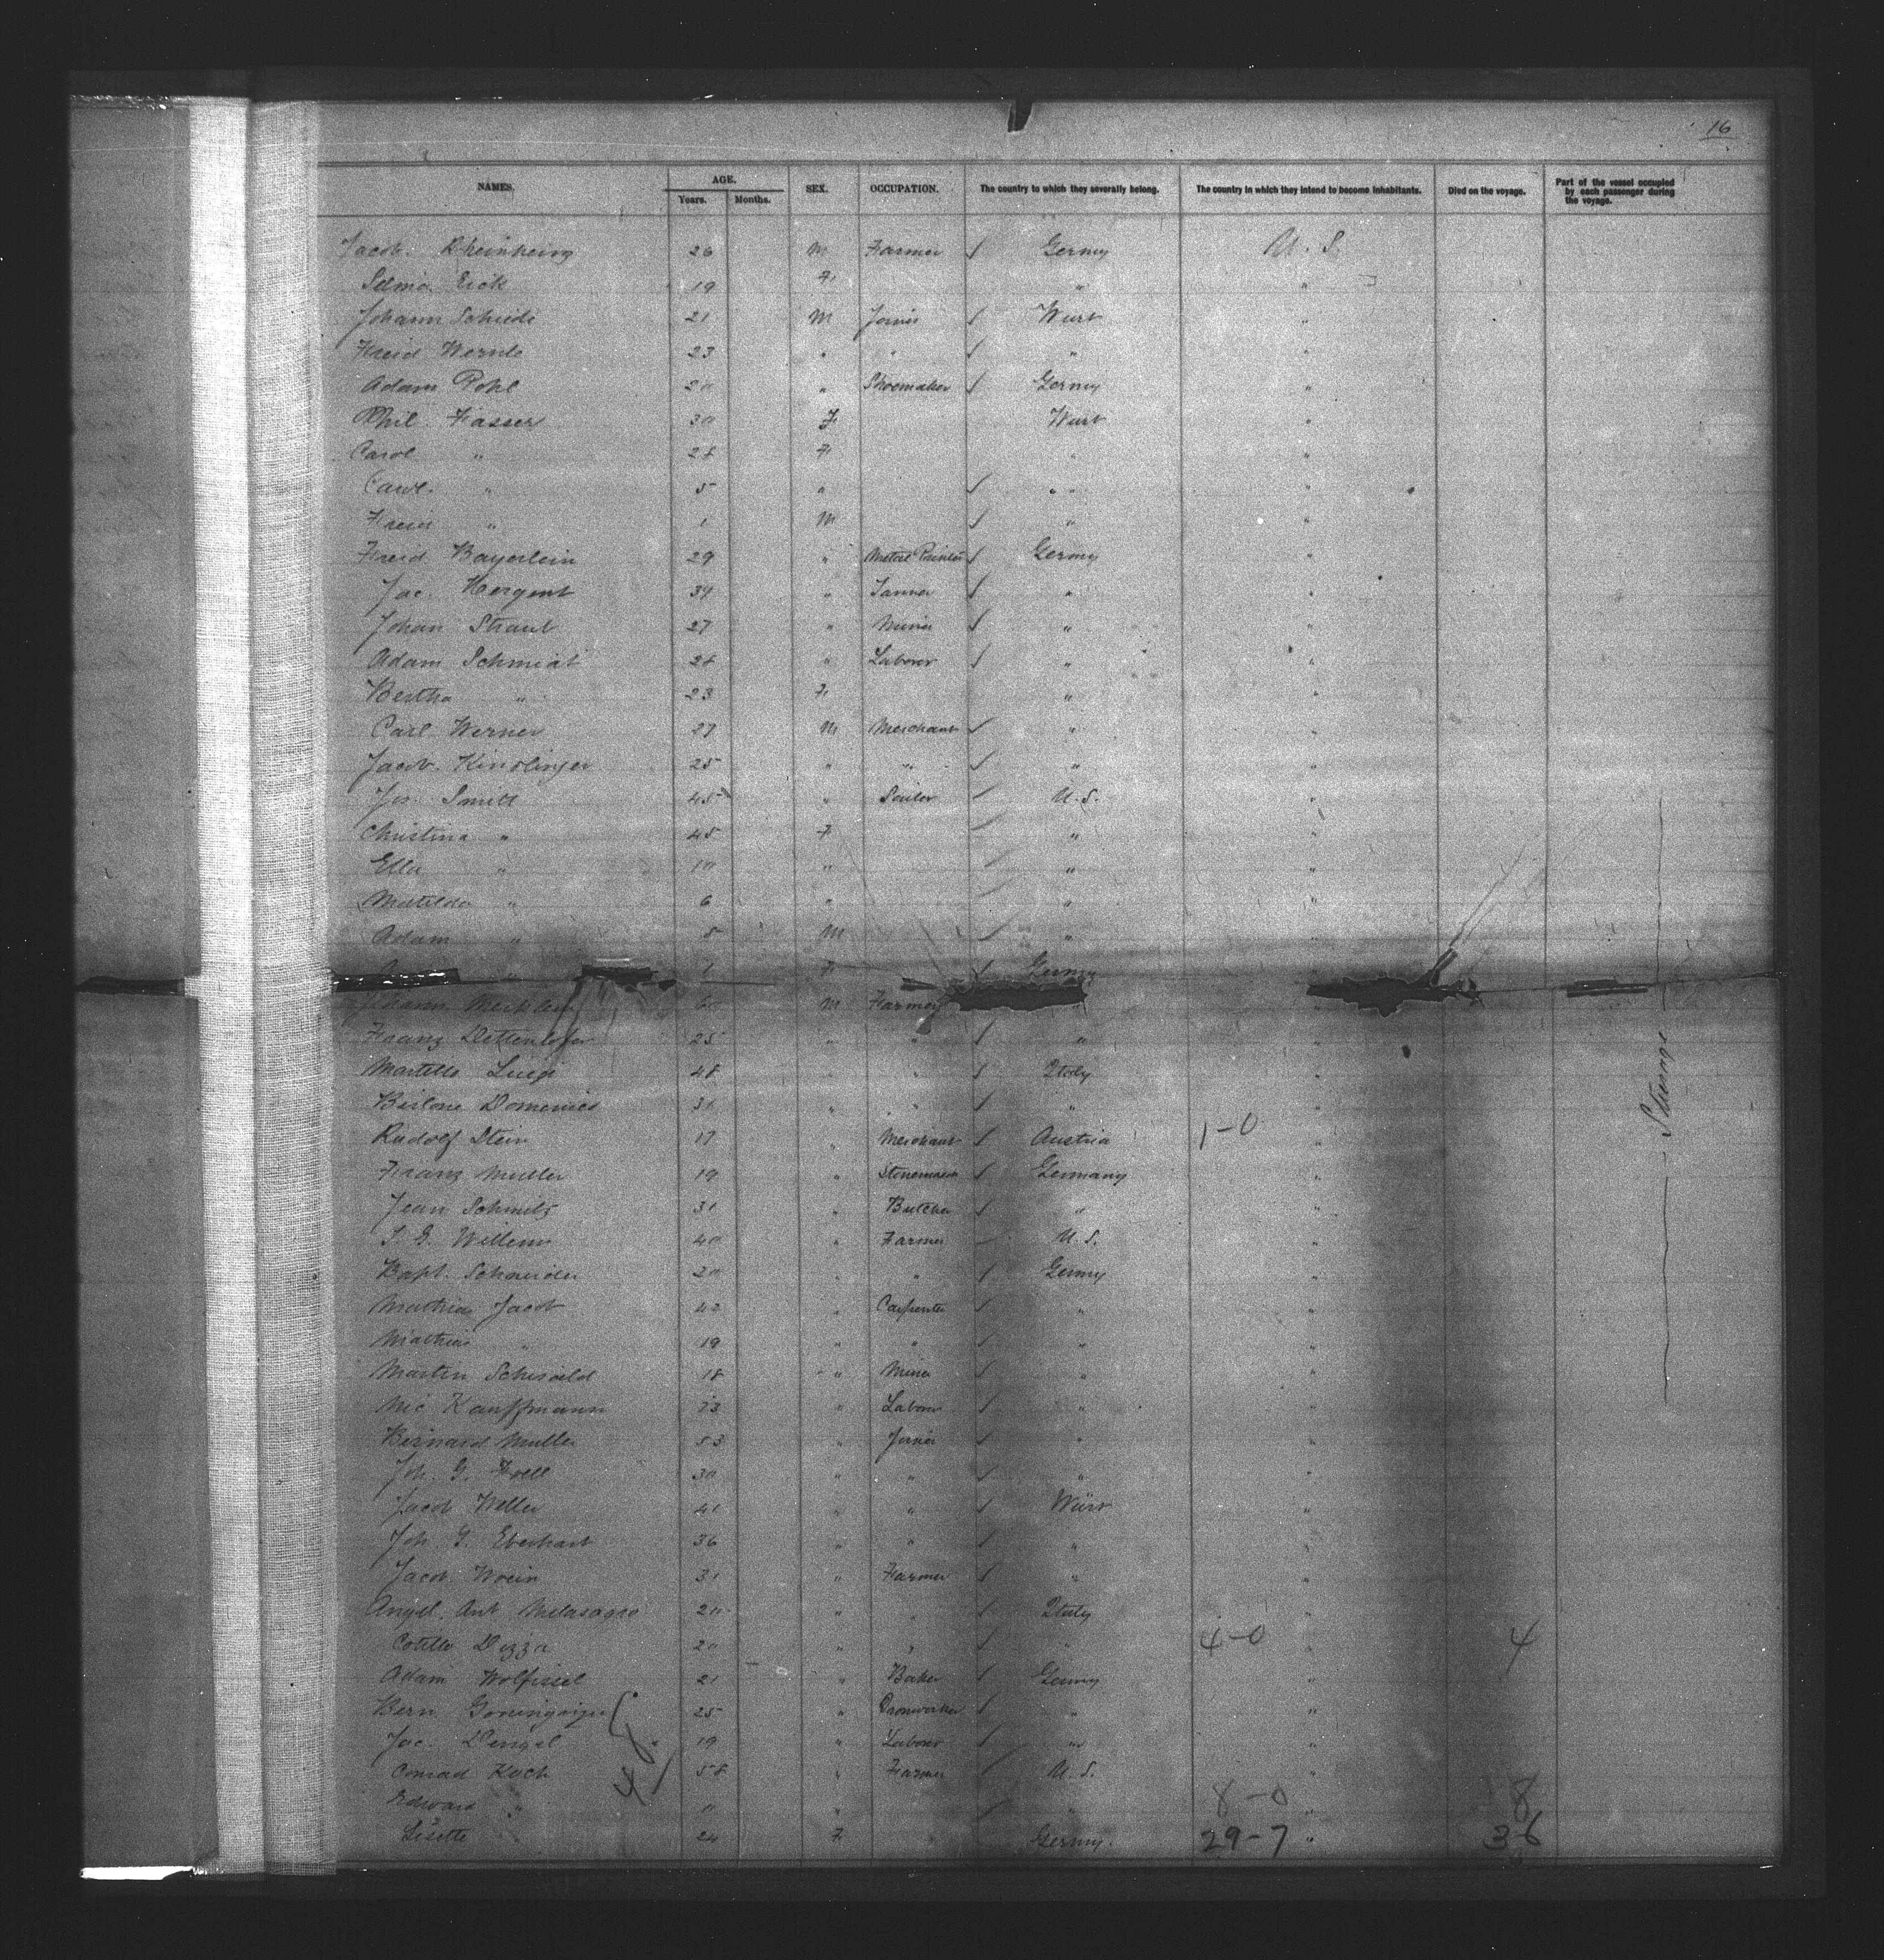 16
NAMES. AGE. SEX. OCCUPATION. The country to which they severally belong. The country in which they intend to become inhabitants. Died on the voyage. Part of the vessel occupied by each passenger during the voyage.
Years. Months.
Jacob. Rheinheim 26 M Farmer / Germy U. S.
Selma Eick 19 F " "
Johann Schiede 21 M Joiner / Wurt "
Freid Wernle 23 " " / " "
Adam Pohl 20 " Shoemaker / Germy "
Phil. Fasser 30 F Wurt "
Carol " 28 F " "
Carol. " 5 " / " "
Freid " 1 M / " "
Freid Bayerlein 29 " Metal Printer / Germy "
Jac. Hergent 34 " Tanner / " "
Johan Straub 27 " Miner / " "
Adam Schmidt 28 " Laborer / " "
Bertha " 23 F " "
Carl Werner 27 M Merchant / " "
Jacob. Kindlinger 25 " " / " "
Jos. Smitt 45 " / U. S. "
Christina " 45 F / " "
Ella " 10 " / " "
Matilda " 6 " / " "
Adam " 5 M / " "
" 1 F / Germy
Johann M Farmer " "
Franz Dettenhofer 25 " " / " "
Martello Luigi 48 " " / Italy "
Domenico 31 " " / " "
Rudolf Stein 17 " Merchant / Austria 1-0 "
Franz Muller 19 " Stonemason / Germany "
Jean Schmitz 31 " Butcher / " "
40 " Farmer U. S. "
Bapt. Schneider 20 " " / Germy "
Mathias Jacob 42 " Carpenter / " "
Mathias " 19 " " / " "
Martin 18 " Miner / " "
Nic Kauffmann 23 " Laborer / " "
Bernard Muller 53 " Joiner / " "
Joh. G. 30 " " / " "
Jacob Weller 41 " " / Würt "
Joh. G. Eberhart 36 " " / " "
Jacob 31 " Farmer / " "
Angel. Ant 20 " " / Italy "
Cotillo 20 " " / " 4-0 " 4
Adam 21 " Baker / Germy "
Bern 25 " Ironworker / " "
Jac. Dengel 19 " Laborer / " "
Conrad Koch 4 58 " Farmer / U. S. "
Edward " 11 " / " 8-0 " 8
Lisette 24 F Germy. 29-7 " 36
Steerage